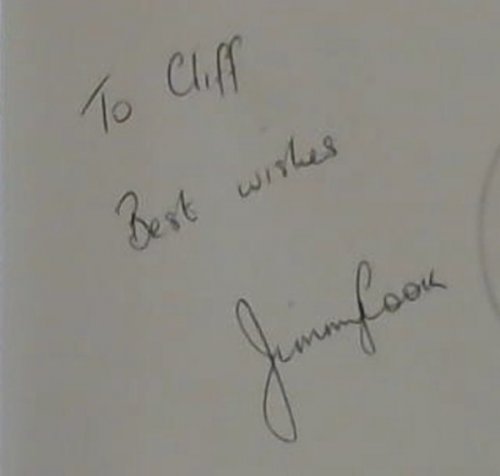 To Cliff
Best wishes
Jimmy Cook